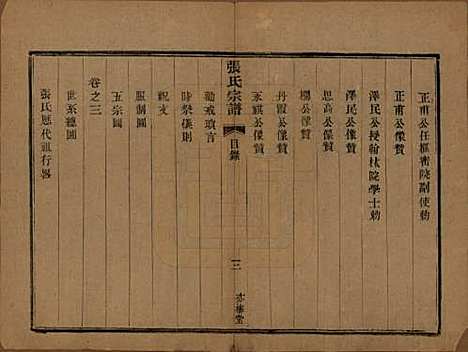 正甫公任樞密院副使勅
正甫公像贊
澤民公授翰林院學士勅
澤民公像贊
思高公像贊
櫻公像贊
丹霞公像贊
永祺公像贊
張氏宗譜
目錄
三
亦樂堂
勸戒瑣言
時祭儀則
祝文
服制圖
五宗圖
卷之三
世系總圖
張氏歷代祖行畧